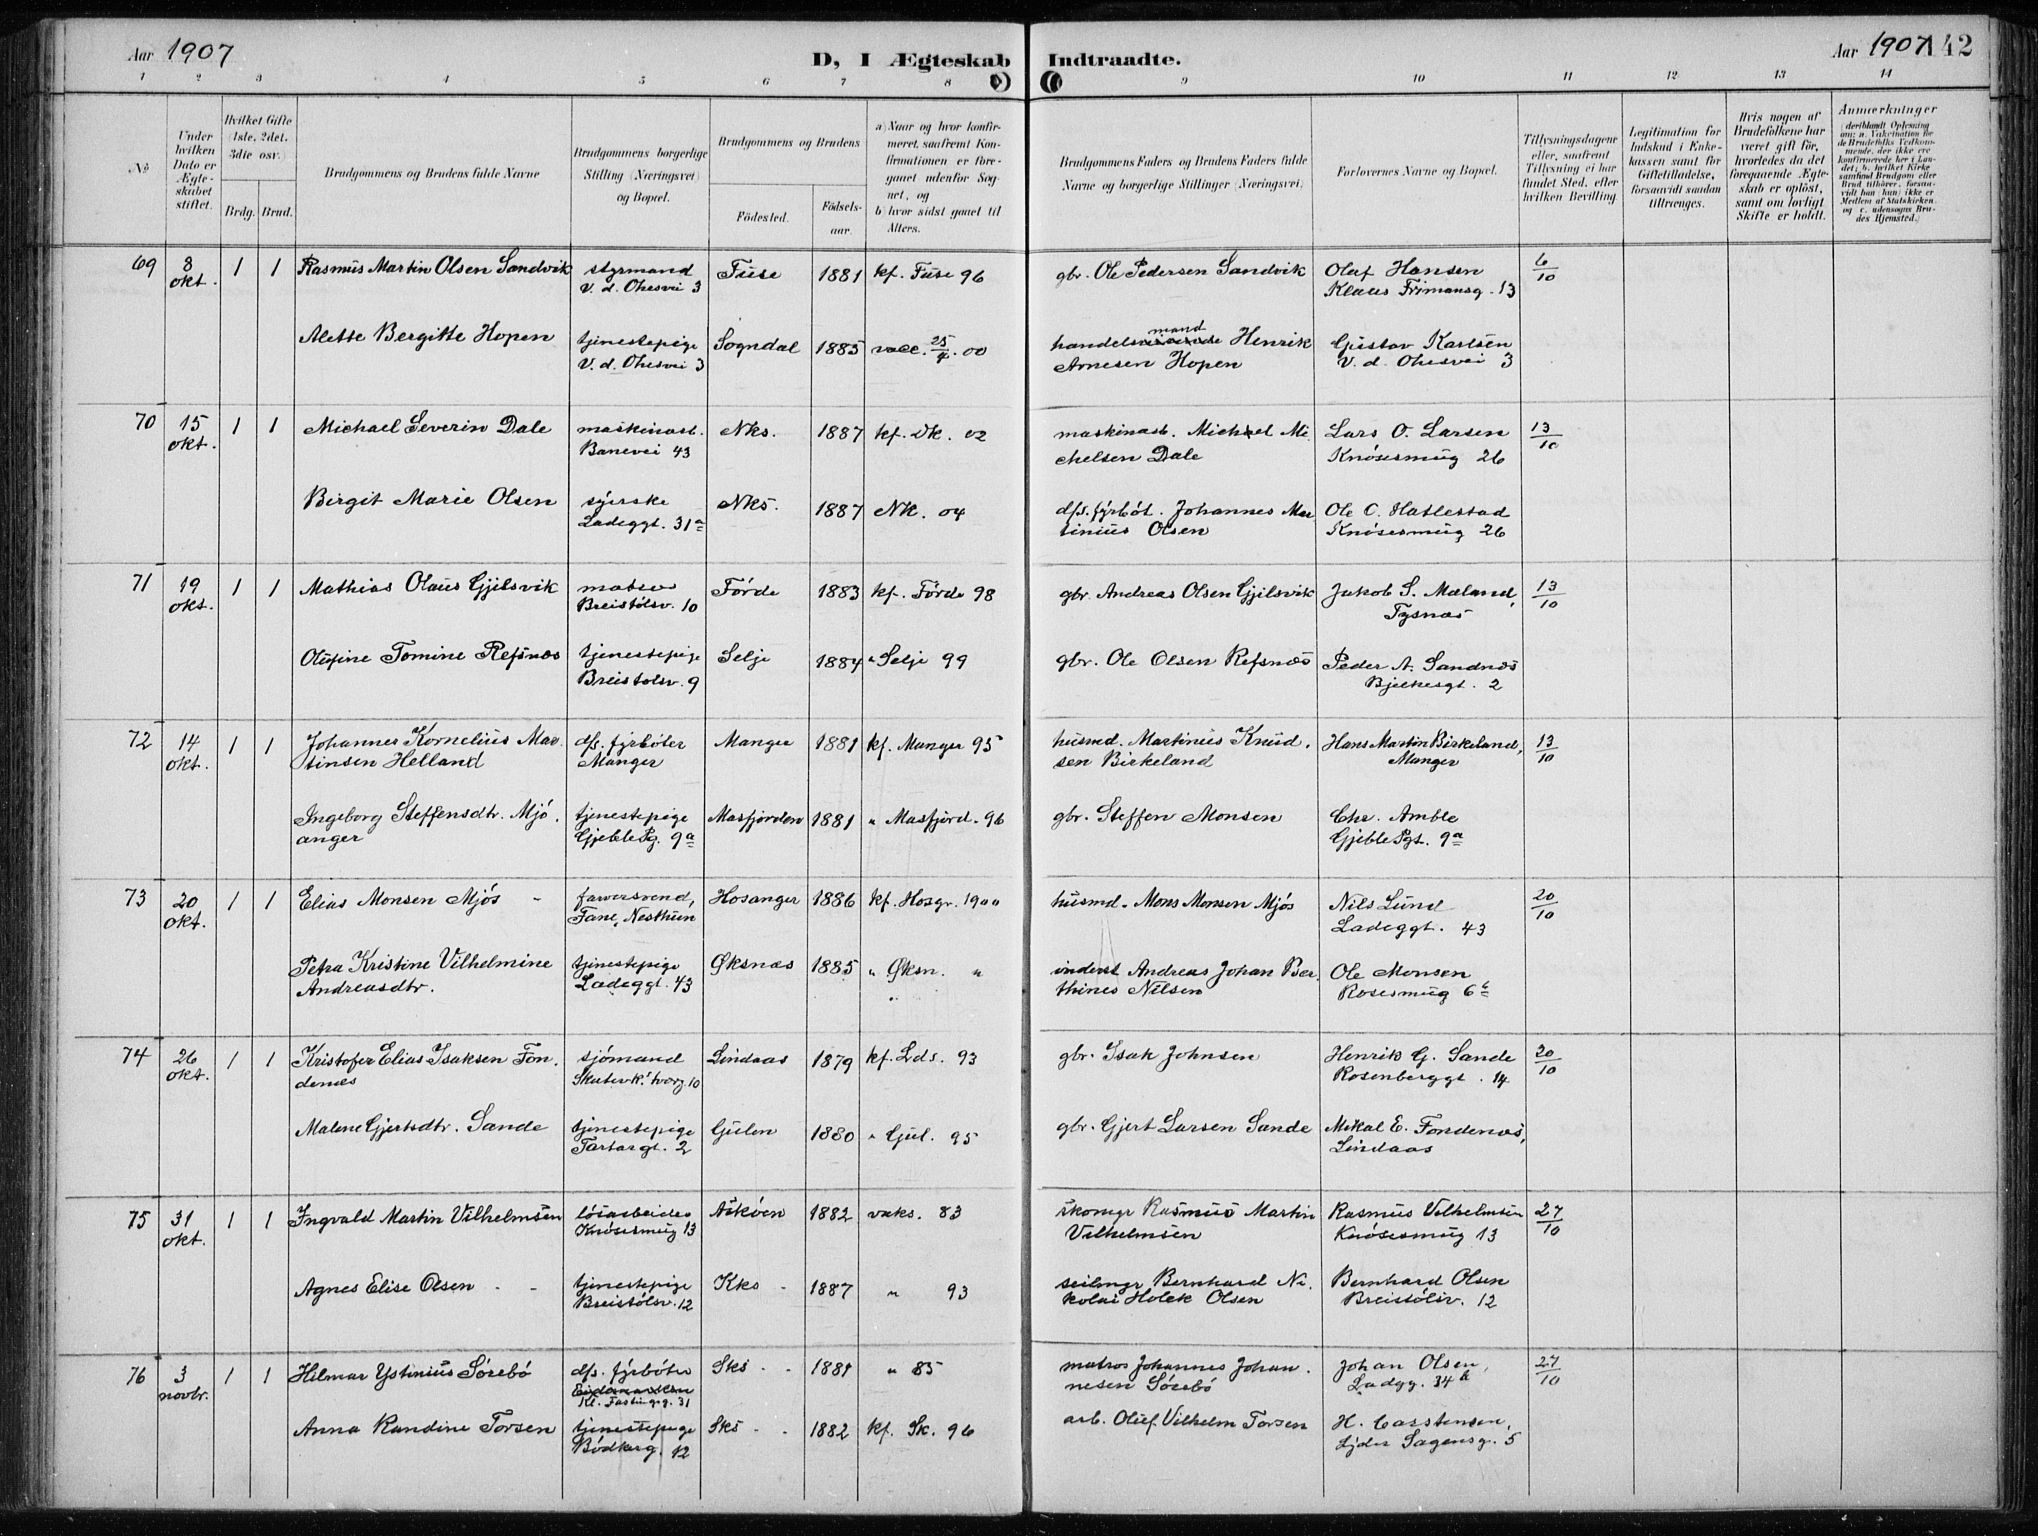 Aar 1907 D, I Ægteskab Indtraadte. Aar 1907 142
1 2 3 4 5 6 7 8 9 10 11 12 13 14
No
Under hvilken Dato er Ægteskabet stiftet.
Hvilket Gifte (1ste, 2det, 3die osv.)
Brdg. Brud.
Brudgommens og Brudens fulde Navne
Brudgommens borgerlige Stilling (Næringsvei) og Bopæl.
Brudgommens og Brudens
Födested. Födselsaar.
a) Naar og hvor konfirmeret, saafremt Konfirmationen er foregaaet udenfor Sognet, og
b) hvor sidst gaaet til Alters.
Brudgommens Faders og Brudens Faders fulde Navne og borgerlige Stillinger (Næringsvei)
Forlovernes Navne og Bopæl.
Tillysningsdagene eller, saafremt Tillysning ei har fundet Sted, efter hvilken Bevilling
Legitimation for Indskud i Enkekassen samt for Giftetilladelse, forsaavidt saadan tiltrænges.
Hvis nogen af Brudefolkene har været gift för, hvorledes da det foregaaende Ægteskab er oplöst, samt om lovligt Skifte er holdt.
Anmærkninger
69 8 okt. 1 1 Rasmus Martin Olsen Sandvik styrmand V. d. Ohesvei 3 Fuse 1881 kf. Fuse 96 gbr. Ole Pedersen Sandvik Olaf Hansen Klaus Frimansg. 13 6/10
Alette Bergitte Hopen tjenestepige V. d. Ohesvei 3 Sogndal 1885 vacc. 25/4. 00 handelsmand Henrik Arnesen Hopen Gustav Karlsen V. d. Ohesvei 3
70 15 okt. 1 1 Michael Severin Dale maskinast. Banevei 43 Nks. 1887 kf. Dk. 02 maskinast. Michael Michelsen Dale Lars O. Larsen Knøsesmug 26 13/10
Birgit Marie Olsen syerske Ladeggt. 31a Nks. 1887 Nk. 04 dfs. fyrböt. Johannes Martinius Olsen Ole C. Hatlestad Knøsesmug 26
71 19 okt. 1 1 Mathias Olaus Gjilsvik matros Breistölsv. 10 Förde 1883 kf. Förde 98 gbr. Andreas Olsen Gjilsvik Jakob S. Mæland, Tysnæs 13/10
Olufine Tomine Refsnæs tjenestepige Breistölsv. 9 Selje 1884 " Selje 99 gbr. Ole Olsen Refsnæs Peder A. Sandnæs Bjelkesgt. 2
72 14 okt. 1 1 Johannes Kornelius Martinsen Helland dfs. fyrböter Manger Manger 1881 kf. Manger 95 husmd. Martinus Knudsen Birkeland Hans Martin Birkeland, Manger 13/10
Ingeborg Steffensdtr. Mjöanger tjenestepige Gjeble Pg. 9a Masfjorden 1881 " Masfjord. 96 gbr. Steffen Monsen Chr. Amble Gjeble Pgt. 9a
73 20 okt. 1 1 Elias Monsen Mjös - farversvend, Fane, Nesttun Hosanger 1886 kf. Hosgr. 1900 husmd. Mons Monsen Mjös Nils Lund Ladeggt. 43 20/10
Petra Kristine Vilhelmine Andreasdtr. tjenestepige Ladeggt. 43 Øksnæs 1885 " Øksn. " inderst Andreas Johan Berthines Nilsen Ole Monsen Rosesmug 6
74 26 okt. 1 1 Kristofer Elias Isaksen Fondenæs sjömand Skutervk. tverg. 10 Lindaas 1879 kf. Lds. 93 gbr. Isak Johnsen Henrik G. Sande Rosenberggt. 14 20/10
Malene Gjertsdtr. Sande tjenestepige Tartargt. 2 Gulen 1880 " Gul. 95 gbr. Gjert Larsen Sande Mikal E. Fondenæs, Lindaas
75 31 okt. 1 1 Ingvald Martin Vilhelmsen løsarbeider Knösesmug 13 Askøen 1882 vaks. 83 skomgr Rasmus Martin Vilhelmsen Rasmus Vilhelmsen Knösesmug 13 27/10
Agnes Elise Olsen - - tjenestepige Breistölsv. 12 Kks - 1887 " 93 seilmgr Bernhard Nikolai Holck Olsen Bernhard Olsen Breistölsv. 12
76 3 novbr. 1 1 Hilmar Ystinius Sörebö dfs. fyrböter Kl. Fastingsg. 31 Sks - - 1881 " 85 matros Johannes Johannesen Sörebö Johan Olsen, Ladgg. 34 27/10
Anna Randine Torsen tjenestepige Bödkerg. 12 Sks - - 1882 kf. Sk. 96 arb. Oluf Vilhelm Torsen H. Carstensen, Lyder Sagensg. 5